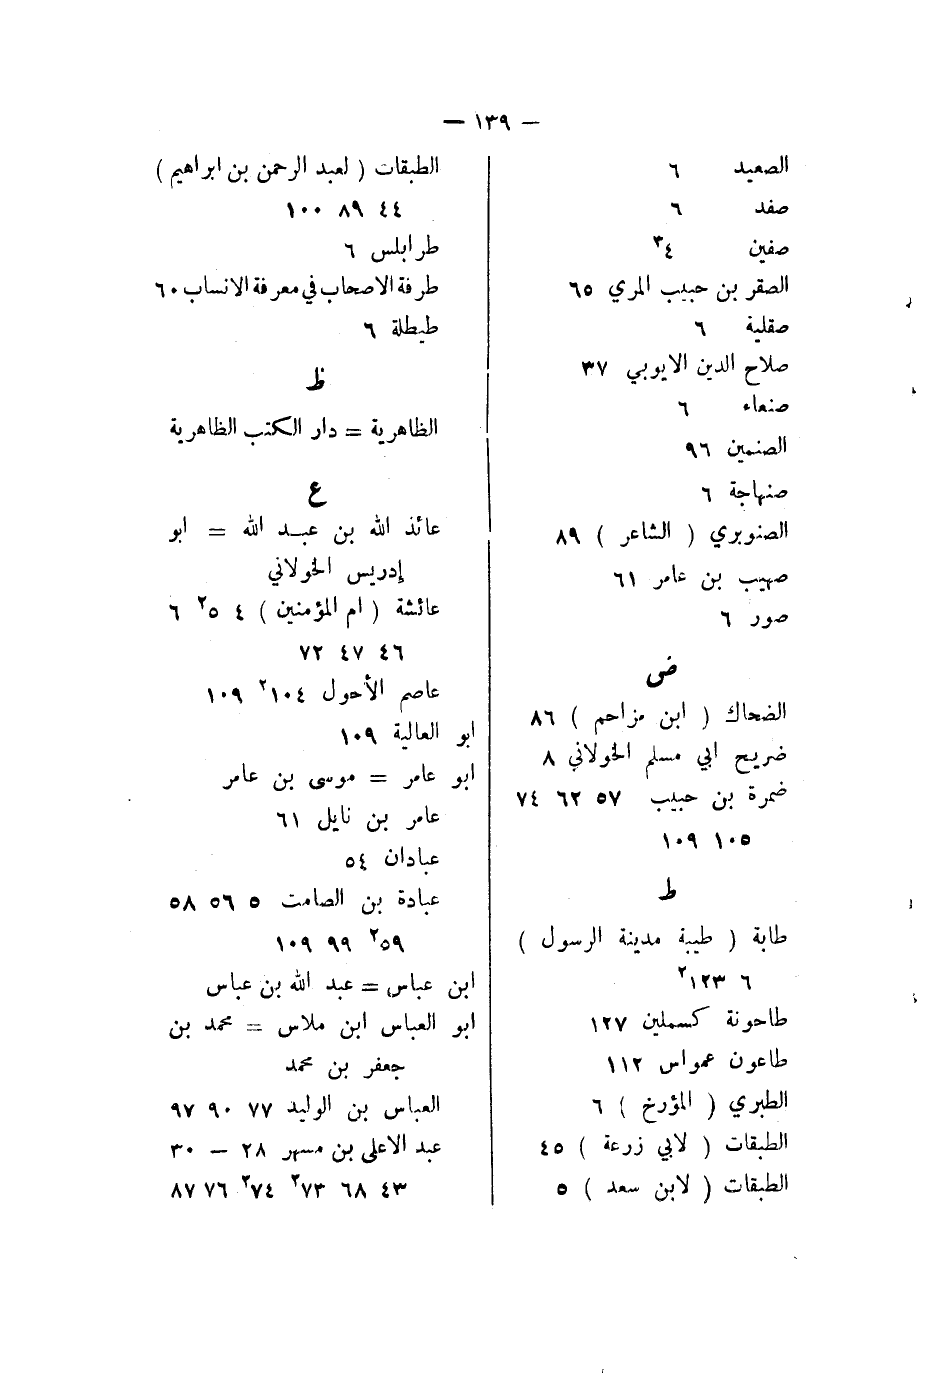 — ١٣٩ —
الصعيد ٦
صفد ٦
صفين ٤٣
الصقر بن حبيب المري ٦٥
صقلية ٦
صلاح الدين الايوبي ٣٧
صنعاء ٦
الصنمين ٩٦
صنهاجة ٦
الصنوبري ( الشاعر ) ٨٩
صهيب بن عامر ٦١
صور ٦
ض
الضحاك ( ابن مزاحم ) ٨٦
ضريح ابي مسلم الخولاني ٨
ضمرة بن حبيب ٥٧ ٦٢ ٧٤
١٠٥ ١٠٩
ط
طابة ( طيبة مدينة الرسول )
٦ ١٢٣٢
طاحونة كسملين ١٢٧
طاعون عمواس ١١٢
الطبري ( المؤرخ ) ٦
الطبقات ( لابي زرعة ) ٤٥
الطبقات ( لابن سعد ) ٥
الطبقات ( لعبد الرحمن بن ابراهيم )
٤٤ ٨٩ ١٠٠
طرابلس ٦
طرفة الاصحاب في معرفة الانساب ٦٠
طيطلة ٦
ظ
الظاهرية = دار الكتب الظاهرية
ع
عائذ الله بن عبد الله = ابو
إدريس الخولاني
عائشة ( ام المؤمنين ) ٤ ٥٢ ٦
٤٦ ٤٧ ٧٢
عاصم الأحول ١٠٤٢ ١٠٩
ابو العالية ١٠٩
ابو عامر = موسى بن عامر
عامر بن نايل ٦١
عبادان ٥٤
عبادة بن الصامت ٥ ٥٦ ٥٨
٥٩٢ ٩٩ ١٠٩
ابن عباس = عبد الله بن عباس
ابو العباس ابن ملاس = محمد بن
جعفر بن محمد
العباس بن الوليد ٧٧ ٩٠ ٩٧
عبد الاعلى بن مسهر ٢٨ – ٣٠
٤٣ ٦٨ ٧٣٢ ٧٤٢ ٧٦ ٨٧